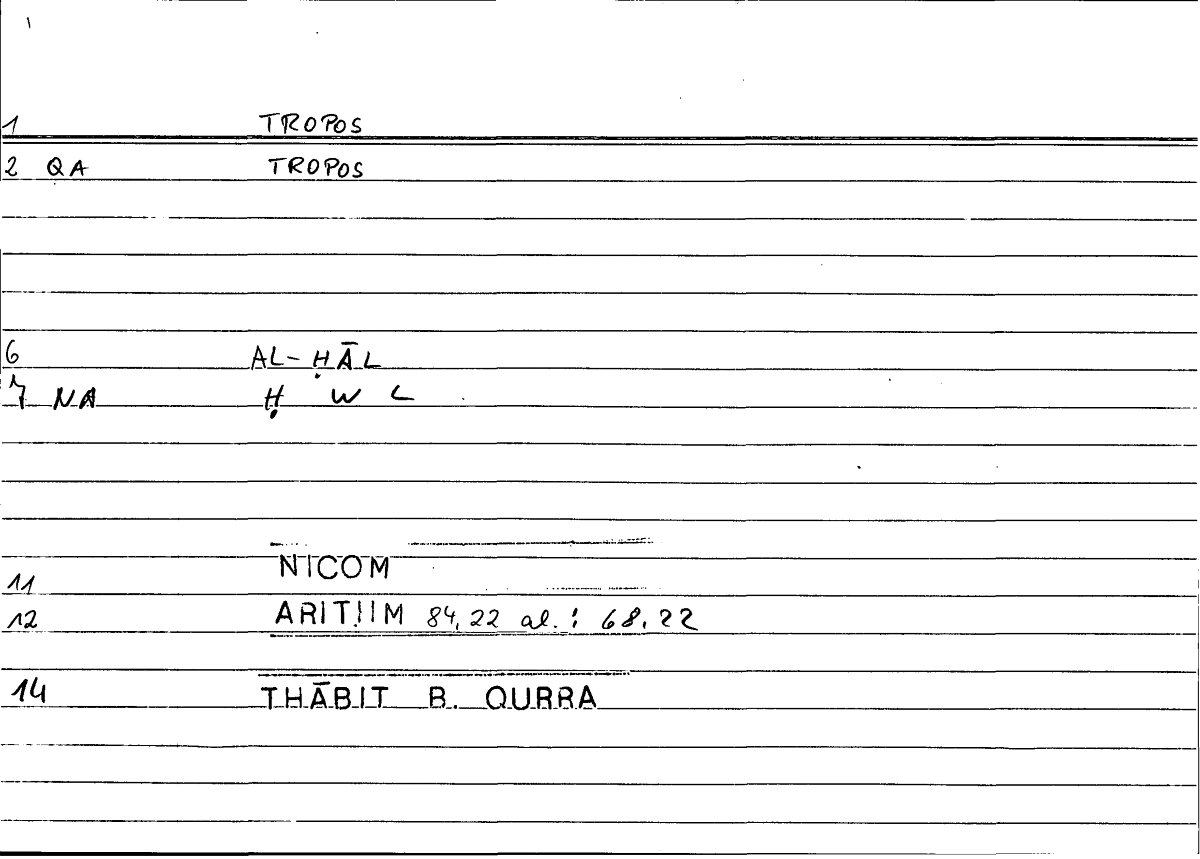 1 TROPOS
2 QA TROPOS
6 AL-ḤĀL
7 NA Ḥ W L
11 NICOM
12 ARITHM 84,22 al.: 68,22
14 THĀBIT B. QURRA